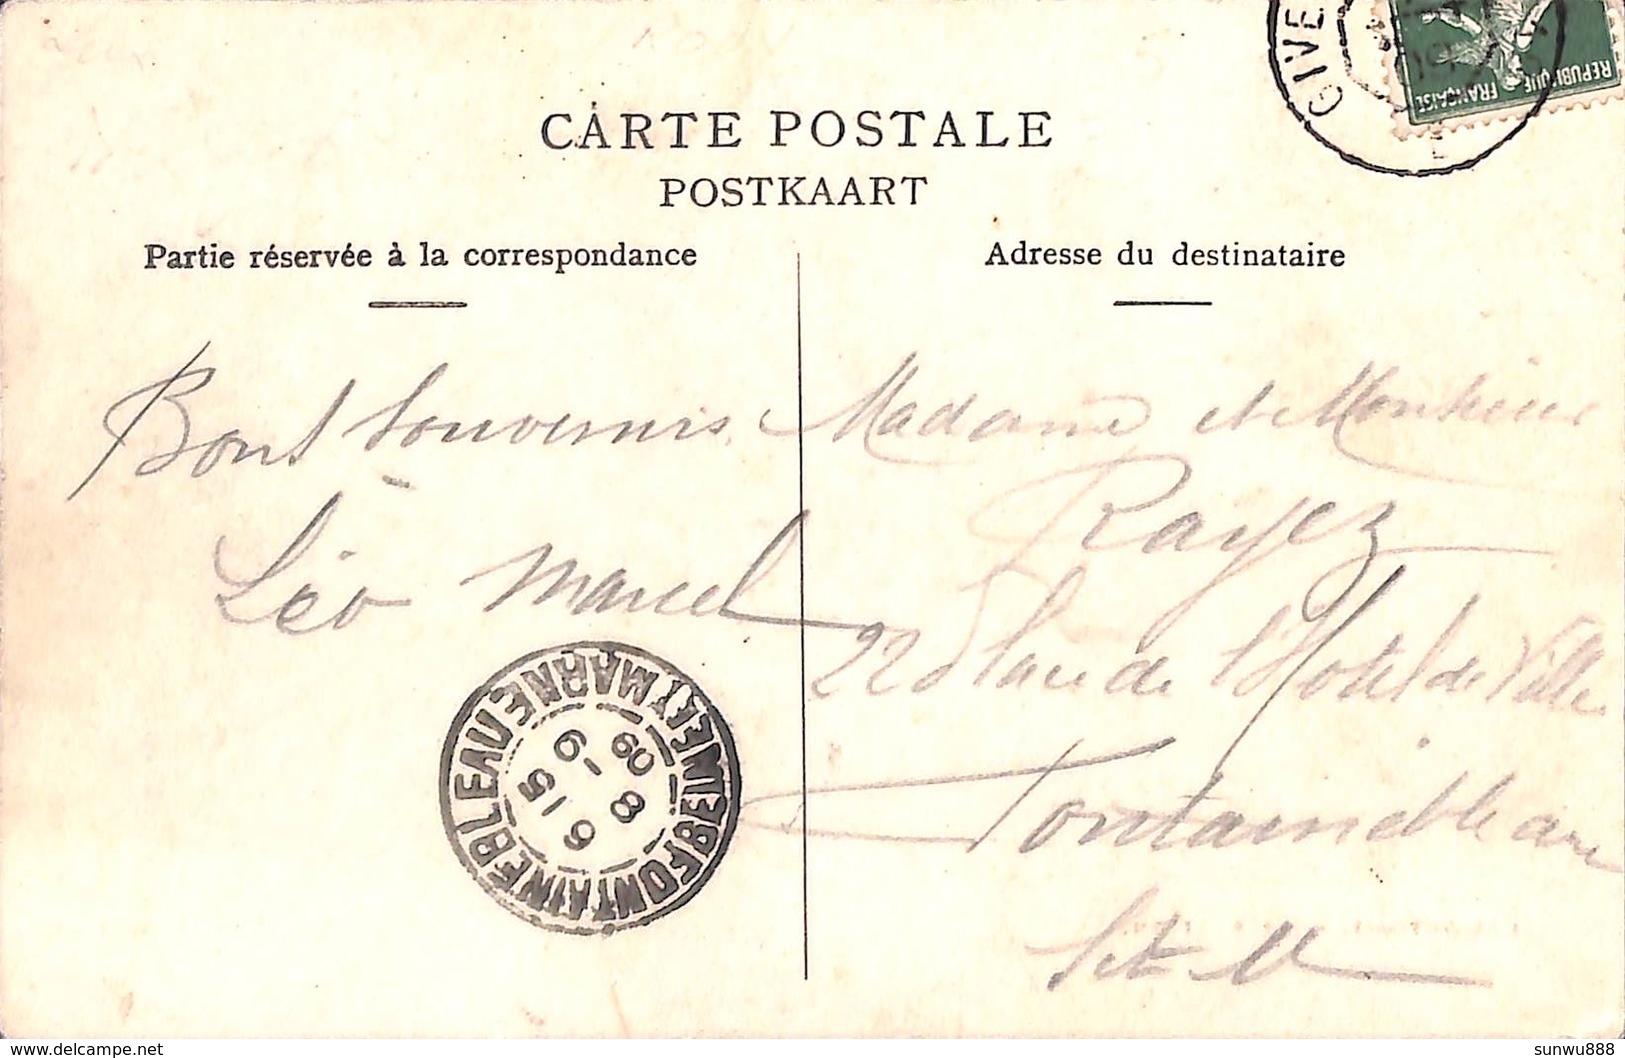 CARTE POSTALE
POSTKAART
Partie réservée à la correspondance
Adresse du destinataire
GIVE
REPUBLIQUE FRANÇAISE
Bons souvenirs
Léo Marcel
Madame et Monsieur
Rayez
22 Place de l'Hôtel de Ville
Fontainebleau
S et M
FONTAINEBLEAU
SEINE ET MARNE
6 15
9 - 8
09
www.delcampe.net
sunwu888